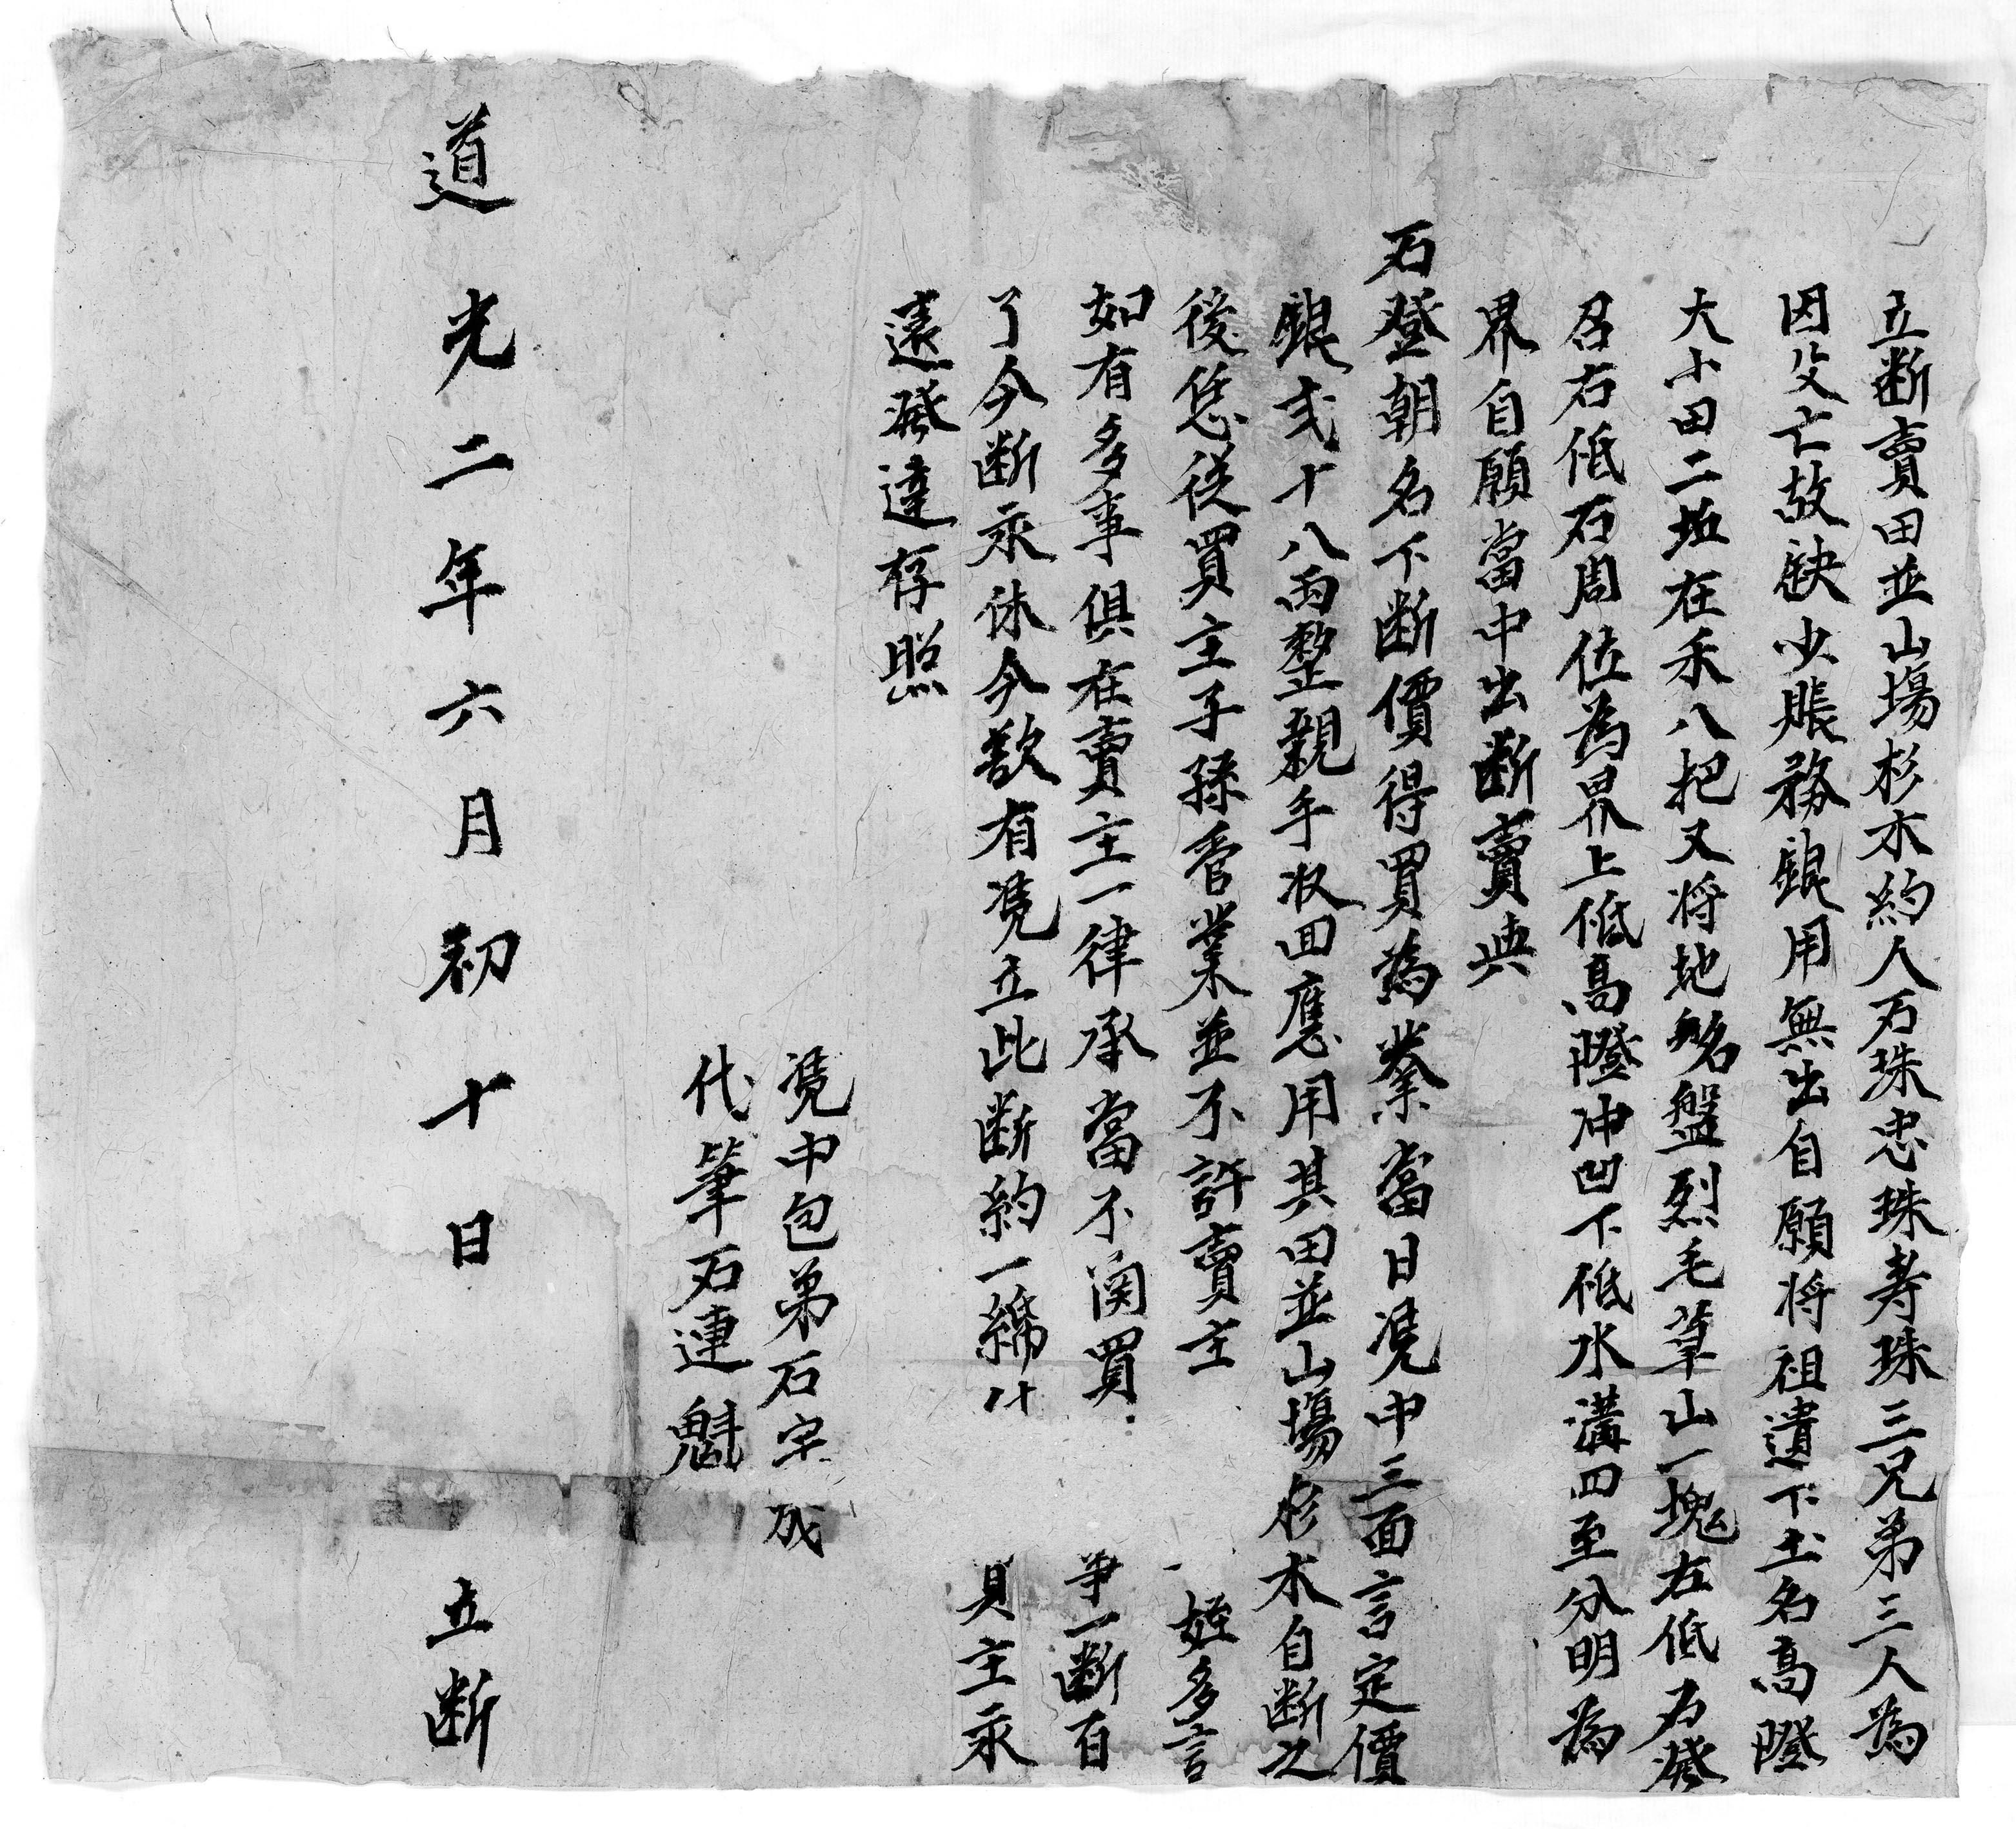 立断賣田並山塲杉木約人石珠忠珠寿珠三兄弟三人為
因父亡故缺少賬務銀用無出自願将祖遺下土名高隥
大小田二坵在禾八把又将地名盤烈毛筆山一塊左低石發
召右低石周位為界上低高隥冲凹下低水溝四至分明為
界自願當中出断賣與
石登朝名下断價得買為業當日凴中三面言定價
銀弍十八両整親手収回應用其田並山塲杉木自断之
後恁従買主子孫管業並不許賣主 姪多言
如有多事俱在賣主一律承當不関買 争一断百
了今断永休今欵有凴立此断約一綿 買主永
遠發達存照
凴中包弟石宗成
代筆石連魁
道光二年六月初十日 立断